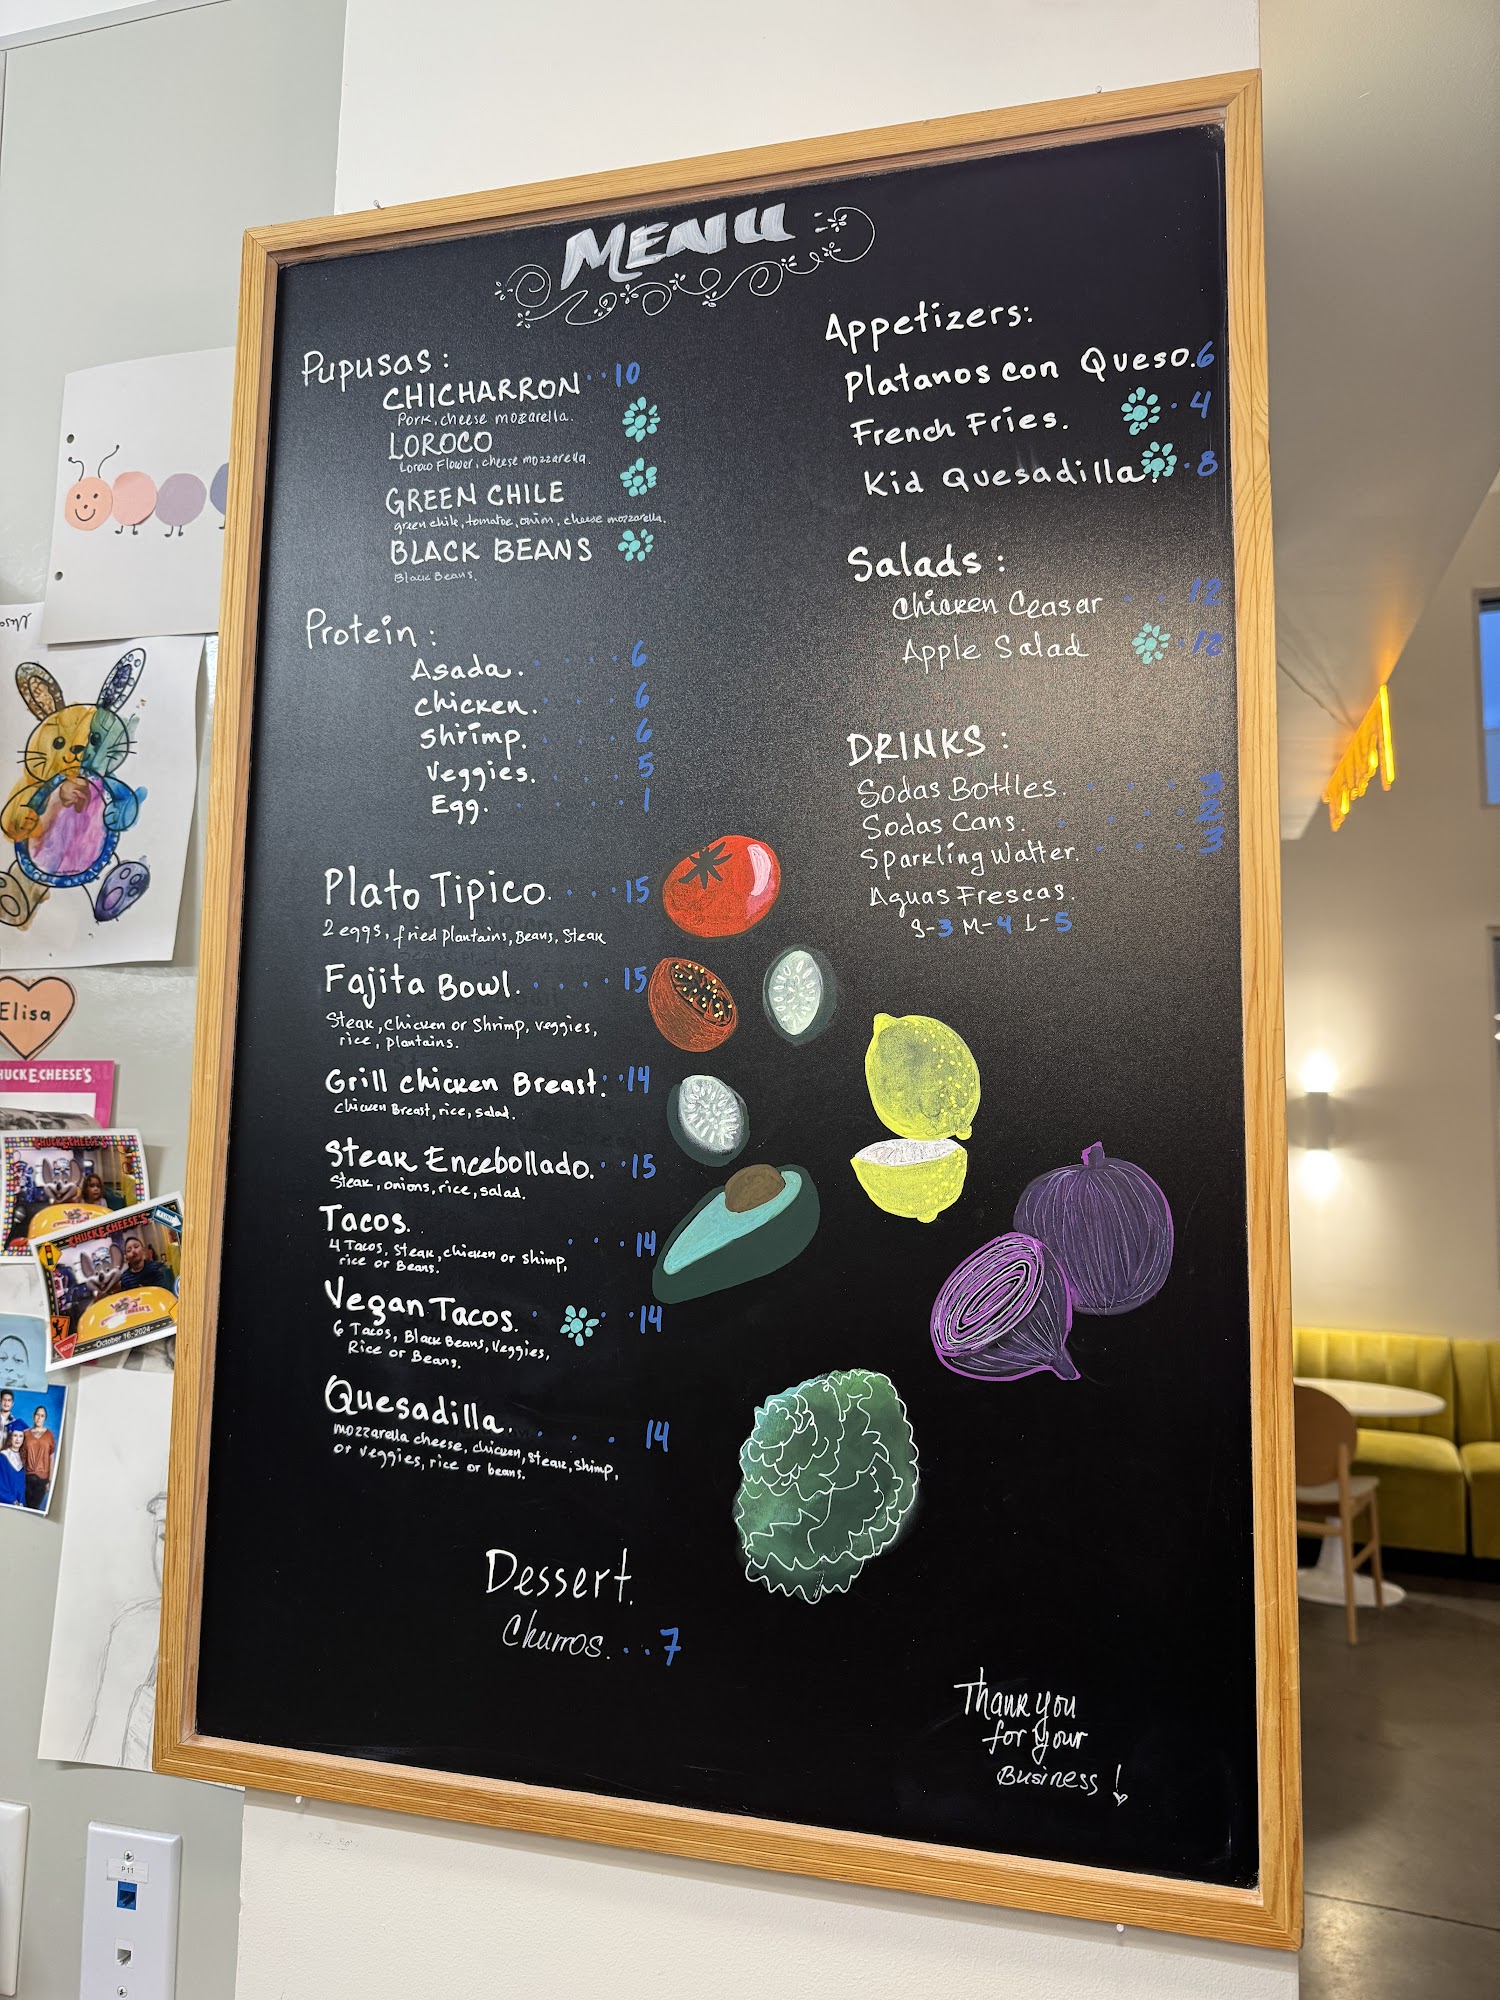 MENU
Pupusas:
CHICHARRON··10
Pork, cheese mozzarella.
LOROCO
Loroco Flower, cheese mozzarella.
GREEN CHILE
green chile, tomatoe, onion, cheese mozzarella.
BLACK BEANS
Black Beans.
Protein:
Asada. · · · · 6
chicken. · · · 6
shrimp. · · · 6
Veggies. · · · 5
Egg. · · · · 1
Plato Tipico. · · · 15
2 eggs, fried Plantains, Beans, Steak
Fajita Bowl. · · · · 15
Steak, chicken or Shrimp, veggies,
rice, plantains.
Grill chicken Breast. · · 14
Chicken Breast, rice, salad.
Steak Encebollado. · · 15
Steak, onions, rice, salad.
Tacos. · · · 14
4 Tacos, steak, chicken or shimp,
rice or Beans.
Vegan Tacos. · · · 14
6 Tacos, Black Beans, Veggies,
Rice or Beans.
Quesadilla. · · · 14
mozzarella cheese, chicken, steak, shimp,
or veggies, rice or beans.
Dessert.
Churros. . . 7
Appetizers:
Platanos con Queso.6
French Fries. · 4
Kid Quesadilla. · 8
Salads:
Chicken Ceasar · · 12
Apple Salad · 12
DRINKS:
Sodas Bottles. · · · 3
Sodas Cans. · · · 2
Sparkling Watter. · · · 3
Aguas Frescas.
S-3 M-4 L-5
Thank you
for your
Business!
Elisa
HUCK E. CHEESE'S
CHUCK E. CHEESE'S
CHUCK E. CHEESE'S
October 16-2024
P11